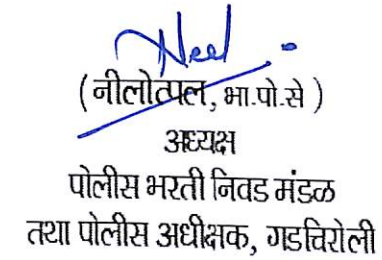 Neel
( नीलोत्पल, भा.पो.से )
अध्यक्ष
पोलीस भरती निवड मंडळ
तथा पोलीस अधीक्षक, गडचिरोली